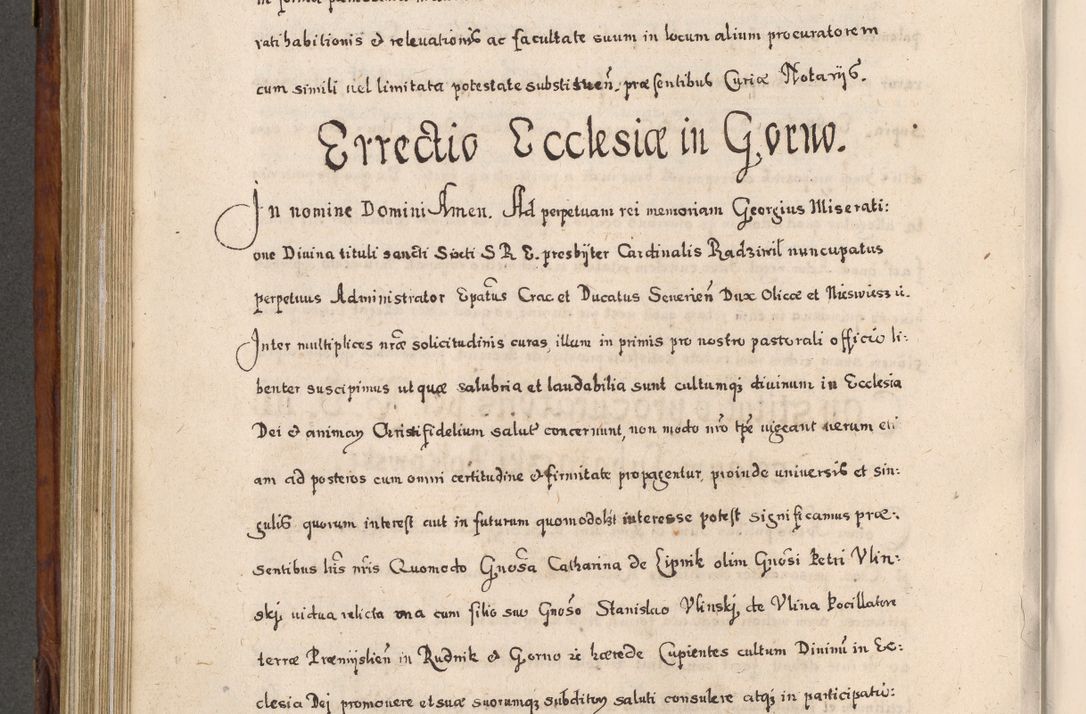 rati habitionis & releuationis ac facultate suum in locum alium procuratorem
cum simili uel limitata potestate substituen̄. præsentibus Curiæ Notarijs.
Errectio Ecclesiæ in Gorno.
In nomine Domini Amen. Ad perpetuam rei memoriam Georgius Miserati:
one Diuina tituli sancti Sixti S R E. presbÿter Cardinalis Radziwil nuncupatus
perpetuus Administrator Epatus Crac et Ducatus Seuerien̄ Dux Olicæ et Nieswiesz ii.
Inter multiplices nr̃æ solicitudinis curas, illam in primis pro nostro pastorali officio li:
benter suscipimus ut quæ salubria et laudabilia sunt cultumqz diuinum in Ecclesia
Dei & animaꝝ Christifidelium salutẽ concernunt, non modo nr̃o tp̃e uigeant uerum eti
am ad posteros cum omni certitudine & firmitate propagentur, proinde universis et sin:
gulis quorum interest aut in futurum quomodolt interesse potest significamus præ:
sentibus lr̃is nr̃is Quomodo Gnosa Catharina de Lipnik olim Gnosi Petri Vlin:
skj uidua relicta una cum filio suo Gnoso Stanislao Vlinskj de Vlina Pocillatore
terræ Præmijslien̄ in Rudnik & Gorno hærede Cupientes cultum Diuinũ in Ec:
clesia Dej promouere et suæ suorumqz subditoꝝ saluti consulere atqz in participatiõ: